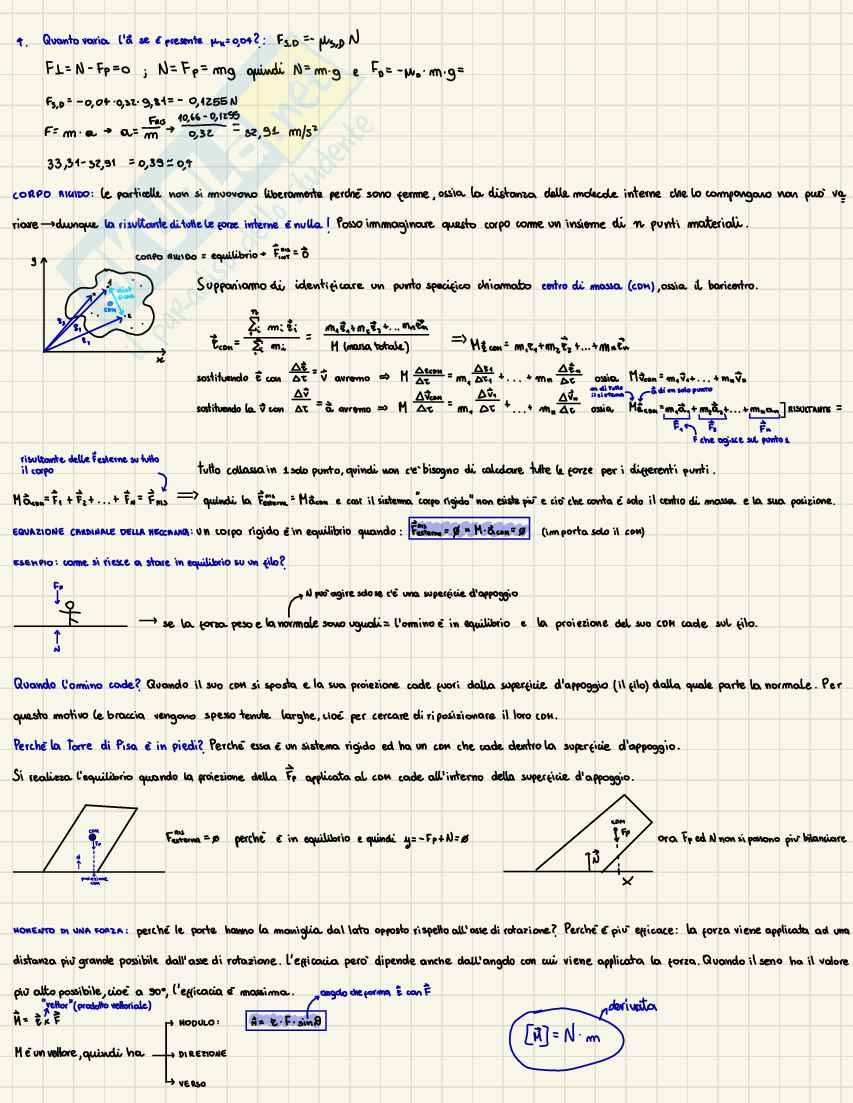 4. Quanto varia l'a⃗ se è presente μₖ=0,04?: F_S,D = - μ_S,D N
F⊥ = N - Fp = 0 ; N = Fp = mg quindi N = m·g e F_D = -μ_D · m·g =
F_S,D = -0,04·0,32·9,81 = - 0,1255 N
F = m·a → a = F_RIS/m → (10,66 - 0,1255)/0,32 = 32,91 m/s²
33,31-32,91 = 0,39 ≃ 0,4
CORPO RIGIDO: le particelle non si muovono liberamente perché sono ferme, ossia la distanza delle molecole interne che lo compongano non può va
riare → dunque la risultante di tutte le forze interne è nulla! Posso immaginare questo corpo come un insieme di n punti materiali.
CORPO RIGIDO = equilibrio → F⃗_INT^RIS = 0⃗
y
x
1
2
CDM
r₂
r₁
Supponiamo di identificare un punto specifico chiamato centro di massa (CDM), ossia il baricentro.
r⃗_CDM = Σⁿᵢ mᵢ r⃗ᵢ / Σⁿᵢ mᵢ = (m₁r⃗₁ + m₂r⃗₂ + ... mₙr⃗ₙ) / M (massa totale) ⟹ M r⃗_CDM = m₁r₁ + m₂r⃗₂ + ... + mₙr⃗ₙ
sostituendo r⃗ con Δr⃗/Δt = v⃗ avremo ⇒ M Δr_CDM/Δt = m₁ Δr₁/Δt + ... + mₙ Δr⃗ₙ/Δt ossia M v⃗_CDM = m₁v⃗₁ + ... + mₙv⃗ₙ
m di tutto il sistema
a⃗ di un solo punto
sostituendo la v⃗ con Δv⃗/Δt = a⃗ avremo ⇒ M Δv⃗_CDM/Δt = m₁ Δv⃗₁/Δt + ... + mₙ Δv⃗ₙ/Δt ossia M a⃗_CDM = m₁a⃗₁ + m₂a⃗₂ + ... + mₙaₙ ] RISULTANTE =
F⃗₁ F⃗₂ F⃗ₙ
F che agisce sul punto 1
risultante delle F⃗ esterne su tutto
il corpo
tutto collassa in 1 solo punto, quindi non c'è bisogno di calcolare tutte le forze per i differenti punti.
M a⃗_CDM = F⃗₁ + F⃗₂ + ... + F⃗ₙ = F⃗_RIS ⟹ quindi la F⃗_esterne^RIS = M a⃗_CDM e così il sistema "corpo rigido" non esiste più e ciò che conta è solo il centro di massa e la sua posizione.
EQUAZIONE CARDINALE DELLA MECCANICA: un corpo rigido è in equilibrio quando: F⃗_esterne^RIS = ∅ = M·a⃗_CDM = ∅ (importa solo il CDM)
ESEMPIO: come si riesce a stare in equilibrio su un filo?
Fp
N
N può agire solo se c'è una superficie d'appoggio
→ se la forza peso e la normale sono uguali = l'omino è in equilibrio e la proiezione del suo CDM cade sul filo.
Quando l'omino cade? Quando il suo CDM si sposta e la sua proiezione cade fuori dalla superficie d'appoggio (il filo) dalla quale parte la normale. Per
questo motivo le braccia vengono spesso tenute larghe, cioè per cercare di riposizionare il loro CDM.
Perché la Torre di Pisa è in piedi? Perché essa è un sistema rigido ed ha un CDM che cade dentro la superficie d'appoggio.
Si realizza l'equilibrio quando la proiezione della F⃗p applicata al CDM cade all'interno della superficie d'appoggio.
CDM
Fp
N
proiezione
CDM
F_esterna^RIS = ∅ perché è in equilibrio e quindi y = -Fp + N = ∅
CDM
Fp
N⃗
X
ora Fp ed N non si possono più bilanciare
MOMENTO DI UNA FORZA: perché le porte hanno la maniglia dal lato opposto rispetto all'asse di rotazione? Perché è più efficace: la forza viene applicata ad una
distanza più grande possibile dall'asse di rotazione. L'efficacia però dipende anche dall'angolo con cui viene applicata la forza. Quando il seno ha il valore
più alto possibile, cioè a 90°, l'efficacia è massima.
angolo che forma r⃗ con F⃗
"vettor" (prodotto vettoriale)
M⃗ = r⃗ x F⃗
MODULO: M⃗ = r · F · sinθ
M è un vettore, quindi ha
DIREZIONE
VERSO
derivata
[M⃗] = N · m